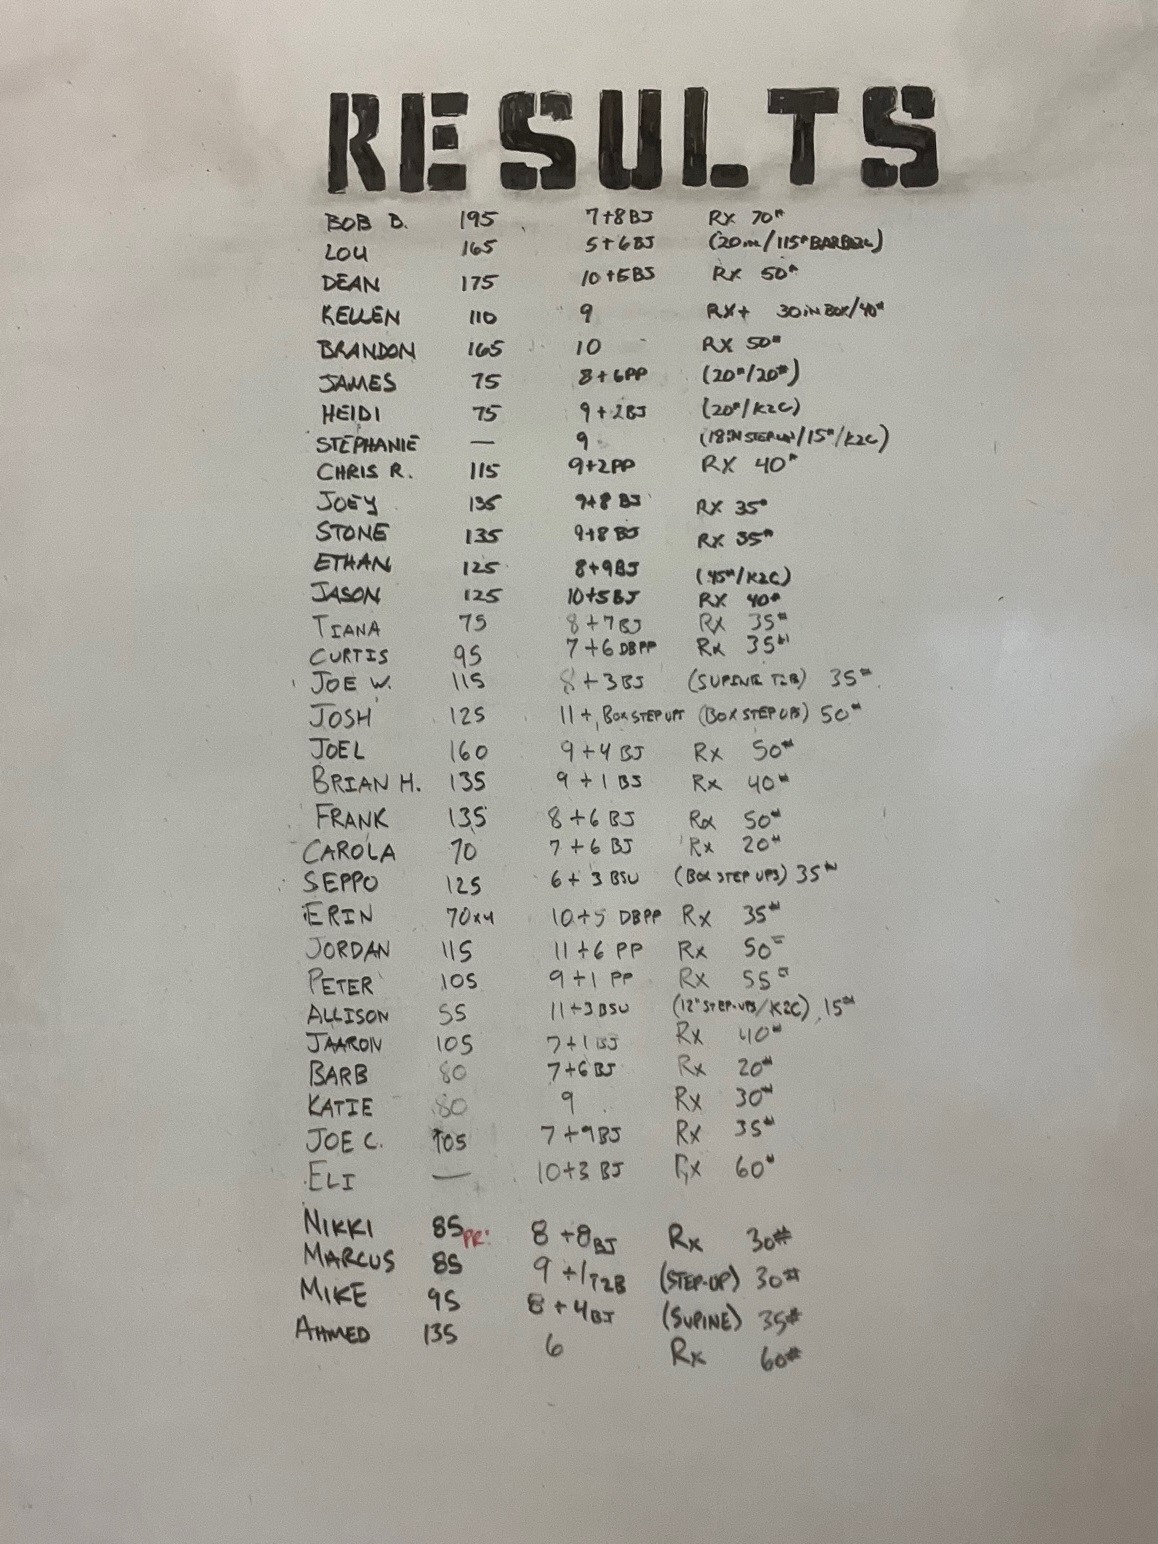 RESULTS
BOB D. 195 7+8BJ RX 70#
LOU 165 5+6BJ (20in/115# BARBELL)
DEAN 175 10+5BJ RX 50#
KELLEN 110 9 RX+ 30IN BOX/40#
BRANDON 165 10 RX 50#
JAMES 75 8+6PP (20"/20#)
HEIDI 75 9+2BJ (20#/K2C)
STEPHANIE — 9 (18IN STEP UP/15#/K2C)
CHRIS R. 115 9+2PP RX 40#
JOEY 135 9+8 BJ RX 35#
STONE 135 9+8 BJ RX 35#
ETHAN 125 8+9BJ (45#/K2C)
JASON 125 10+5BJ RX 40#
TIANA 75 8+7BJ RX 35#
CURTIS 95 7+6 DBPP RX 35#
JOE W. 115 8+3BJ (SUPINE T2B) 35#
JOSH 125 11+1 BOX STEP UPS (BOX STEP UPS) 50#
JOEL 160 9+4 BJ Rx 50#
BRIAN H. 135 9+1 BJ Rx 40#
FRANK 135 8+6 BJ Rx 50#
CAROLA 70 7+6 BJ Rx 20#
SEPPO 125 6+3 BSU (BOX STEP UPS) 35#
ERIN 70x4 10+5 DBPP Rx 35#
JORDAN 115 11+6 PP Rx 50#
PETER 105 9+1 PP Rx 55#
ALLISON 55 11+3BSU (12" STEP-UPS/K2C) 15#
JAARON 105 7+1 BJ Rx 40#
BARB 80 7+6BJ Rx 20#
KATIE 80 9 Rx 30#
JOE C. 105 7+9BJ Rx 35#
ELI — 10+3 BJ Rx 60#
NIKKI 85 PR! 8+8BJ Rx 30#
MARCUS 85 9+1T2B (STEP-UP) 30#
MIKE 95 8+4BJ (SUPINE) 35#
AHMED 135 6 Rx 60#